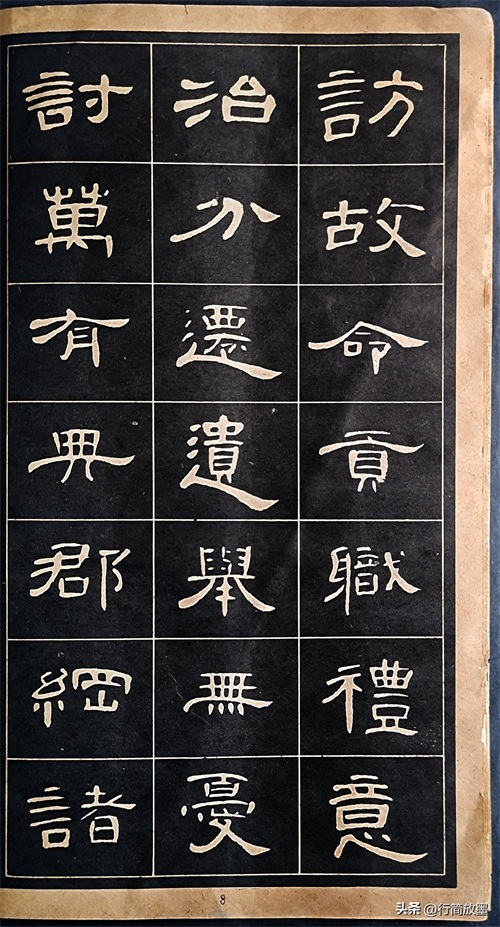 訪故命貢職禮意
治分遷遺舉無憂
討萬有典郡綱諸
8
头条 @行简放墨